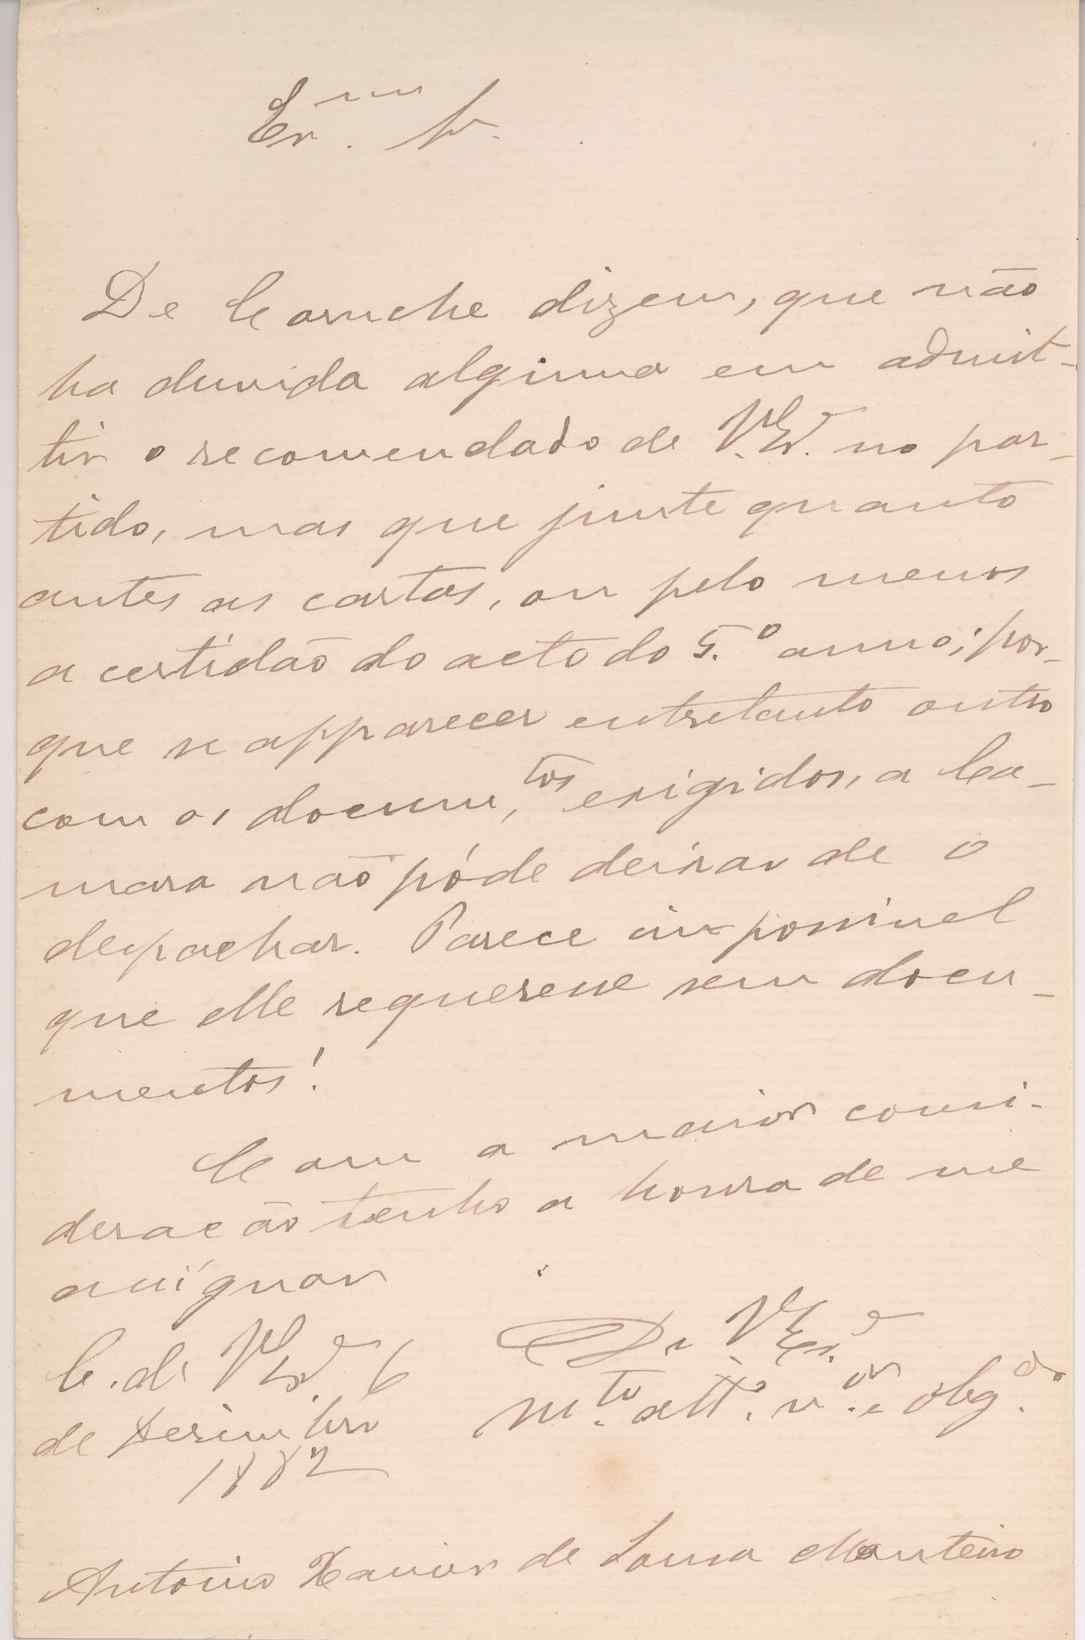 Ex.mo Sr.
De Coruche dizem, que não
ha duvida alguma em admit-
tir o recomendado de V. Ex.ª no par-
tido, mas que junte quanto
antes as cartas, ou pelo menos
a certidão do acto do 5.º anno; por-
que se apparecer entretanto outro
com os docum.tos exigidos, a Ca-
mara não póde deixar de o
despachar. Parece impossivel
que elle requeresse sem docu-
mentos!
Com a maior consi-
deração tenho a honra de me
assignar
C. de V. Ex.ª 6
De V. Ex.ª
de Dezembro
m.to att.º v.or e obg.do
1882
Antonio Xavier de Sousa Monteiro